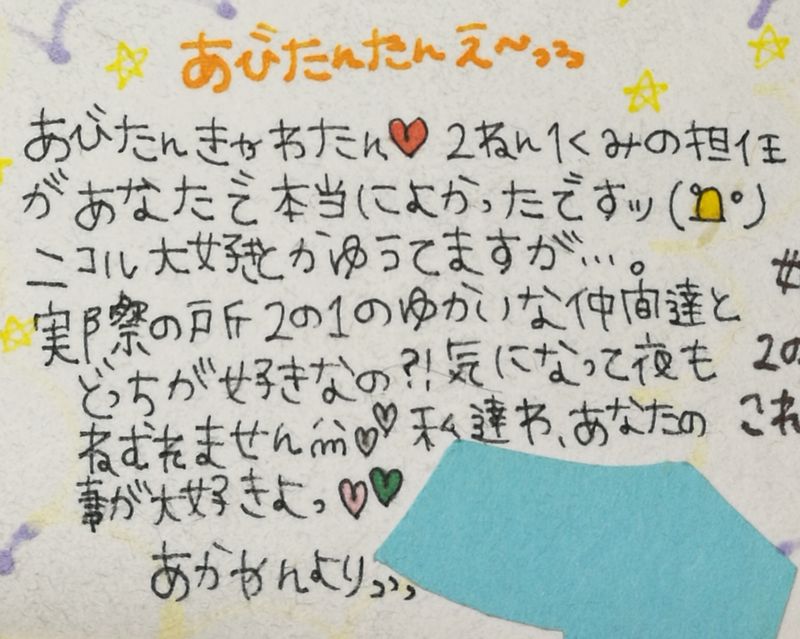 あびたんたんえ〜っっ
あびたんきゃわたん♥ 2ねん1くみの担任
があなたで本当によかったですッ(°°)
ニコル大好きとかゆってますが…。
実際の所2の1のゆかいな仲間達と
どっちが好きなの?!気になって夜も
ねむれません♡♡私達わ、あなたの
事が大好きよっ♥♥
あかかんよりっっっ
2の
これ